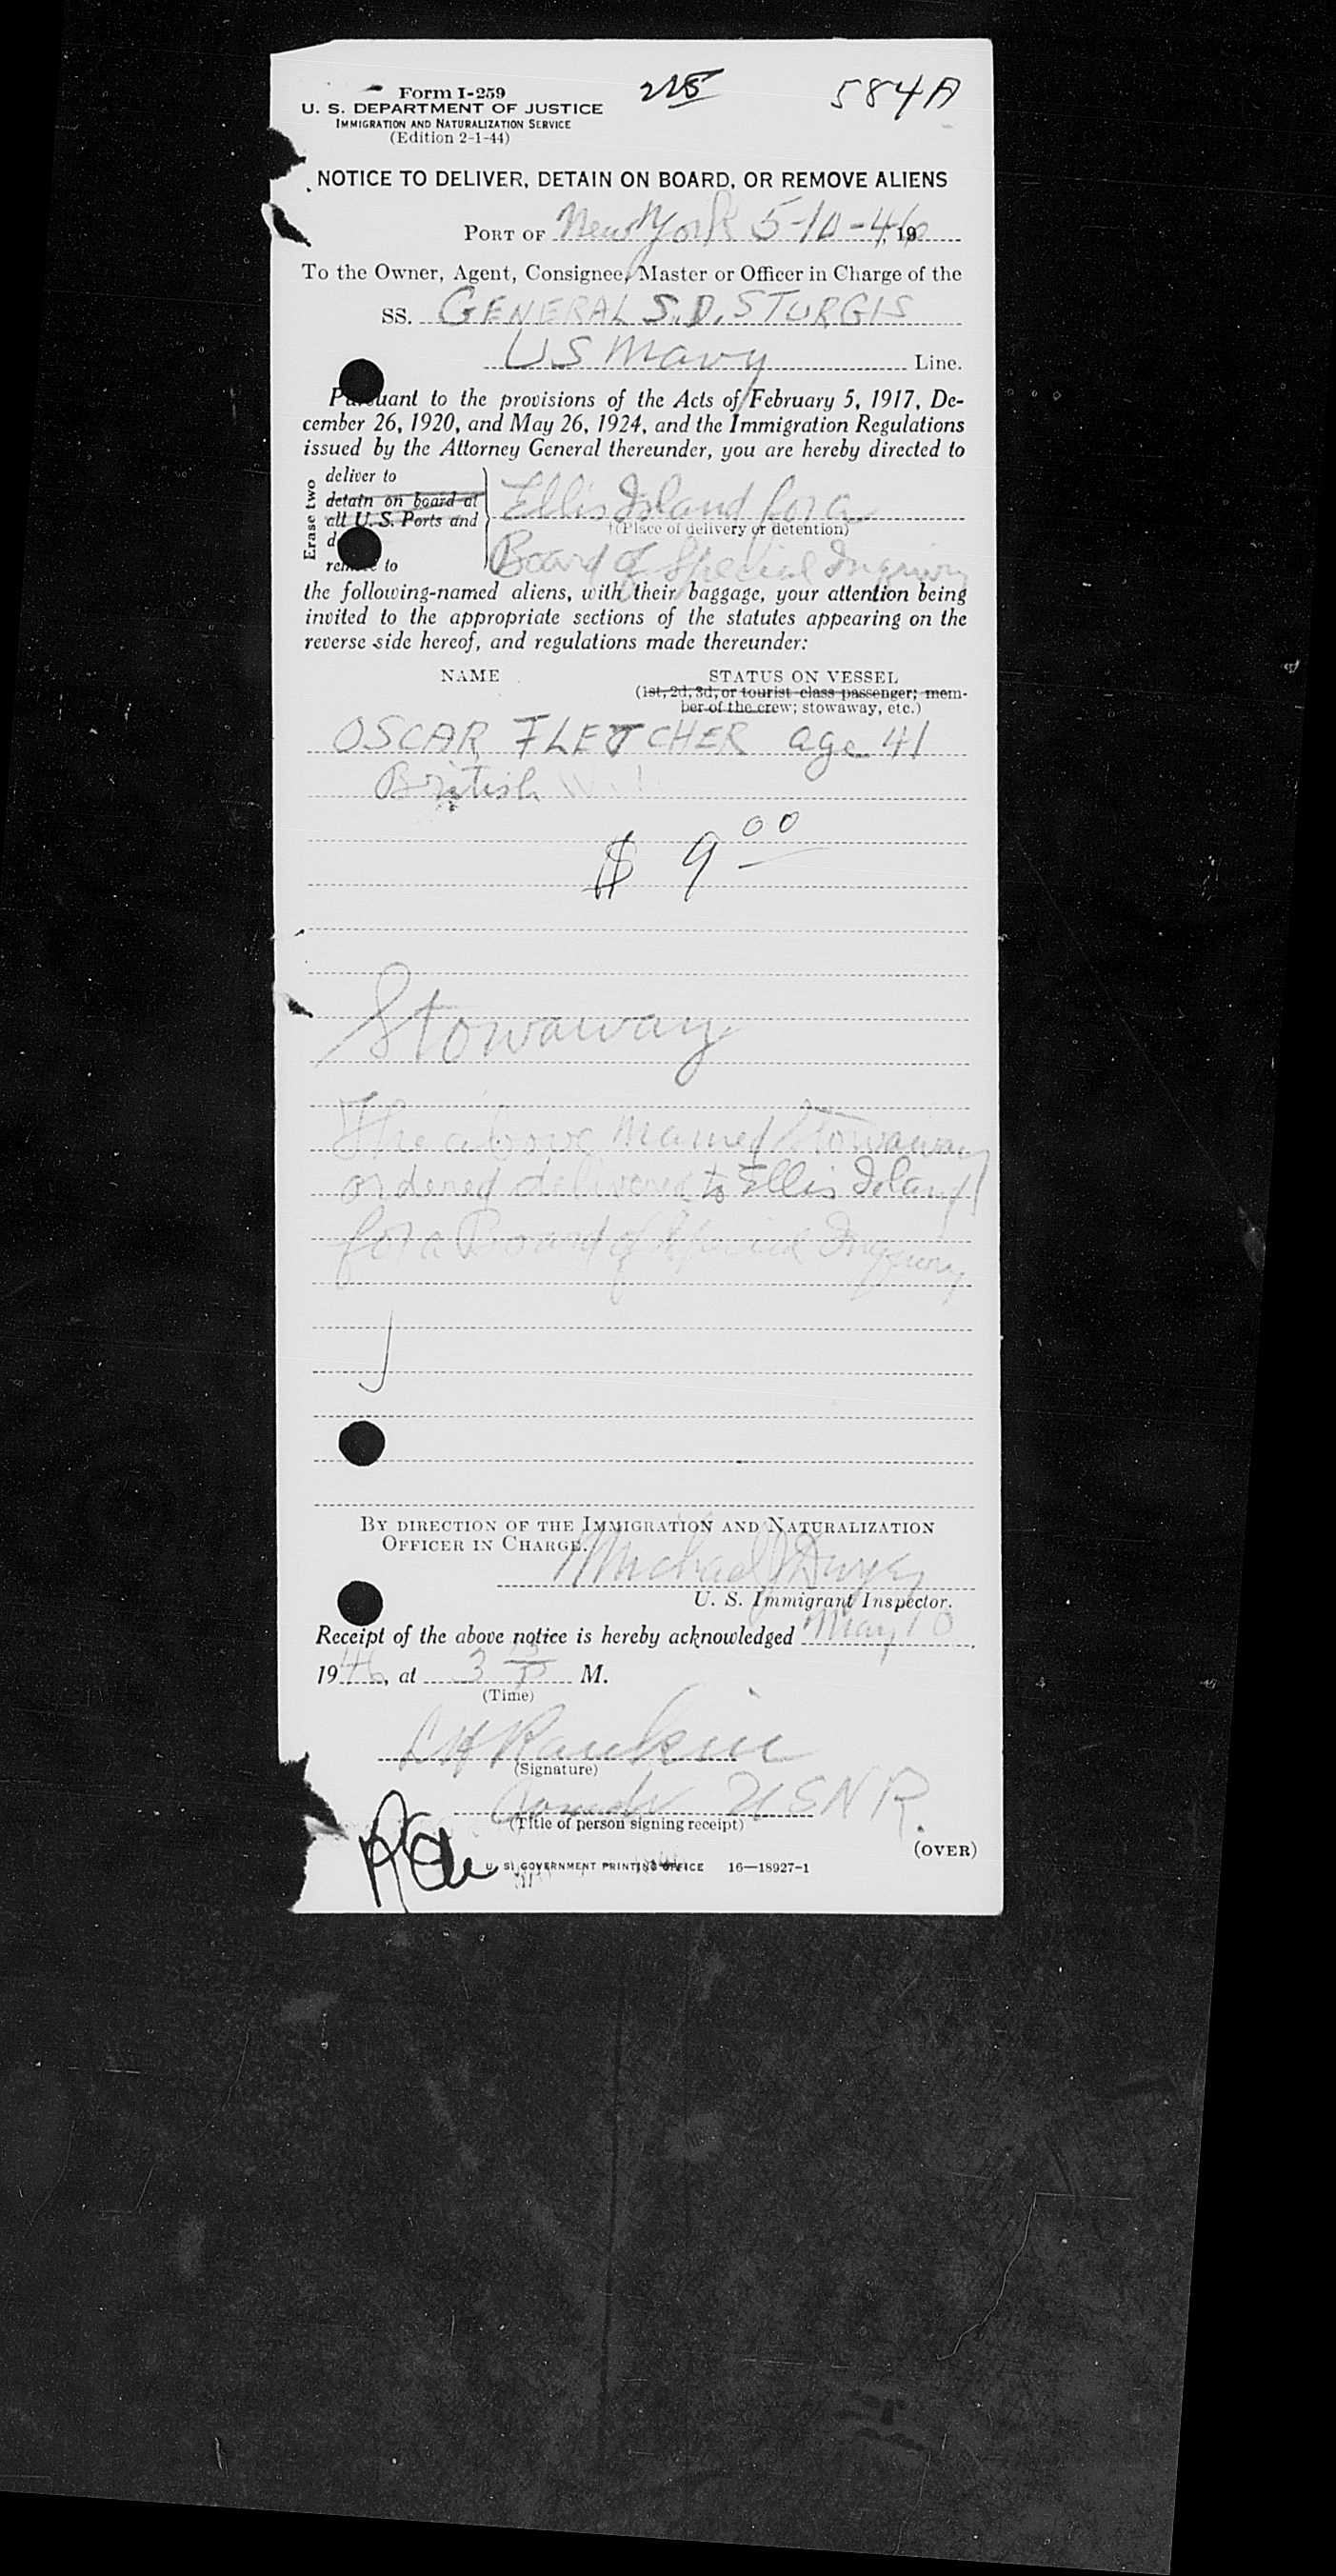 Form I-259
U. S. DEPARTMENT OF JUSTICE
IMMIGRATION AND NATURALIZATION SERVICE
(Edition 2-1-44)
584A
NOTICE TO DELIVER, DETAIN ON BOARD, OR REMOVE ALIENS
PORT OF New York 5-10-46, 19
To the Owner, Agent, Consignee, Master or Officer in Charge of the
SS. GENERAL S.D. STURGIS
US Navy Line.
Pursuant to the provisions of the Acts of February 5, 1917, De-
cember 26, 1920, and May 26, 1924, and the Immigration Regulations
issued by the Attorney General thereunder, you are hereby directed to
Erase two
deliver to
detain on board at
all U. S. Ports and
to
Ellis Island for a
(Place of delivery or detention)
Board of Special Inquiry
the following-named aliens, with their baggage, your attention being
invited to the appropriate sections of the statutes appearing on the
reverse side hereof, and regulations made thereunder:
NAME STATUS ON VESSEL
(1st, 2d, 3d, or tourist class passenger; mem-
ber of the crew; stowaway, etc.)
OSCAR FLETCHER age 41
British
$ 9 00
Stowaway
The above named Stowaway
ordered delivered to Ellis Island
for a Board of Special Inquiry
BY DIRECTION OF THE IMMIGRATION AND NATURALIZATION
OFFICER IN CHARGE.
Michael J Dwyer
U. S. Immigrant Inspector.
Receipt of the above notice is hereby acknowledged May 10
1946, at 3 P M.
(Time)
L H Rankin
(Signature)
Comdr USNR.
(Title of person signing receipt)
(OVER)
U. S. GOVERNMENT PRINTING OFFICE 16—18927-1